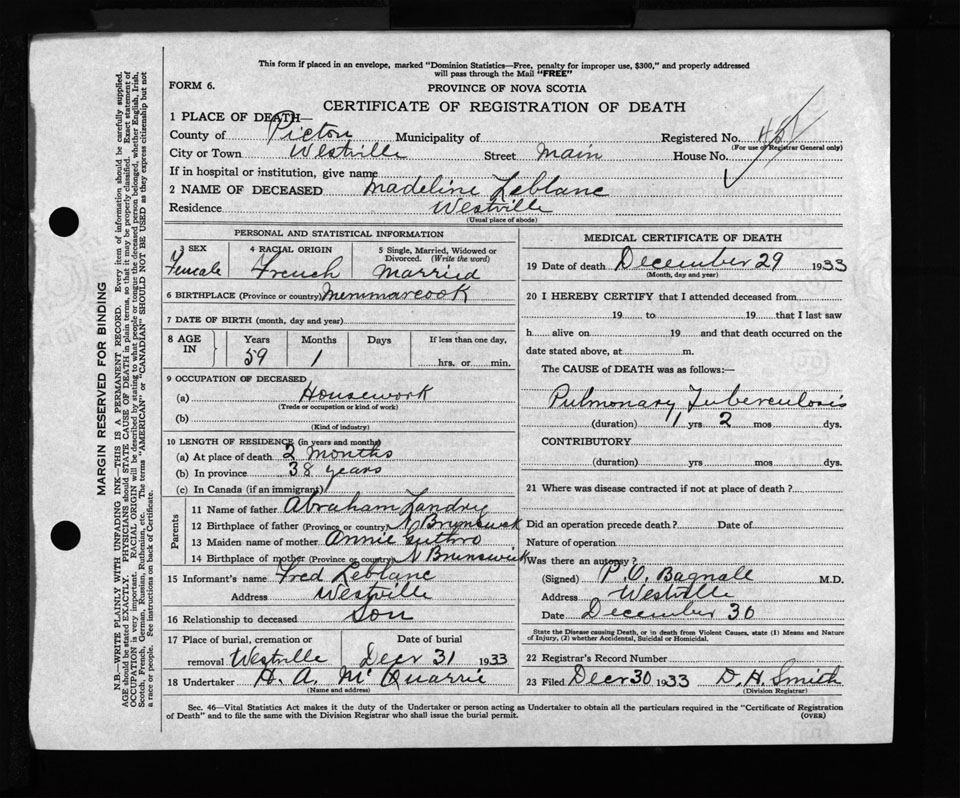 This form if placed in an envelope, marked "Dominion Statistics—Free, penalty for improper use, $300," and properly addressed
will pass through the Mail "FREE"
FORM 6.
PROVINCE OF NOVA SCOTIA
CERTIFICATE OF REGISTRATION OF DEATH
1 PLACE OF DEATH—
County of Pictou Municipality of Registered No.
(For use of Registrar General only)
City or Town Westville Street Main House No.
If in hospital or institution, give name
2 NAME OF DECEASED Madeline Leblanc
Residence Westville
(Usual place of abode)
PERSONAL AND STATISTICAL INFORMATION
3 SEX 4 RACIAL ORIGIN 5 Single, Married, Widowed or
Divorced. (Write the word)
Female French Married
6 BIRTHPLACE (Province or country) Memmarcook
7 DATE OF BIRTH (month, day and year)
8 AGE IN Years Months Days If less than one day,
59 1 hrs. or min.
9 OCCUPATION OF DECEASED
(a) Housework
(Trade or occupation or kind of work)
(b)
(Kind of industry)
10 LENGTH OF RESIDENCE (in years and months)
(a) At place of death 2 months
(b) In province 38 years
(c) In Canada (if an immigrant)
Parents
11 Name of father Abraham Landry
12 Birthplace of father (Province or country) N Brunswick
13 Maiden name of mother Annie Guthro
14 Birthplace of mother (Province or country) N Brunswick
15 Informant's name Fred Leblanc
Address Westville
16 Relationship to deceased Son
17 Place of burial, cremation or Date of burial
removal Westville Decr 31 1933
18 Undertaker H. A. McQuarrie
(Name and address)
MEDICAL CERTIFICATE OF DEATH
19 Date of death December 29 1933
(Month, day and year)
20 I HEREBY CERTIFY that I attended deceased from
19 to 19 that I last saw
h alive on 19 and that death occurred on the
date stated above, at m.
The CAUSE of DEATH was as follows:—
Pulmonary Tuberculosis
(duration) 1 yrs 2 mos dys.
CONTRIBUTORY
(duration) yrs mos dys.
21 Where was disease contracted if not at place of death?
Did an operation precede death? Date of
Nature of operation
Was there an autopsy?
(Signed) P. O. Bagnall M.D.
Address Westville
Date December 30
State the Disease causing Death, or in death from Violent Causes, state (1) Means and Nature
of Injury, (2) whether Accidental, Suicidal or Homicidal.
22 Registrar's Record Number
23 Filed Decr 30 1933 D. H. Smith
(Division Registrar)
Sec. 46—Vital Statistics Act makes it the duty of the Undertaker or person acting as Undertaker to obtain all the particulars required in the "Certificate of Registration
of Death" and to file the same with the Division Registrar who shall issue the burial permit. (OVER)
MARGIN RESERVED FOR BINDING
N.B.—WRITE PLAINLY WITH UNFADING INK—THIS IS A PERMANENT RECORD. Every item of information should be carefully supplied.
AGE should be stated EXACTLY. PHYSICIANS should STATE CAUSE OF DEATH in plain terms, so that it may be properly classified. Exact statement of
OCCUPATION is very important. RACIAL ORIGIN will be described by stating to what people or tongue the deceased person belonged, whether English, Irish,
Scotch, French, German, Russian, Ruthenian, etc. The terms "AMERICAN" or "CANADIAN" SHOULD NOT BE USED as they express citizenship but not
a race or people. See instructions on back of Certificate.